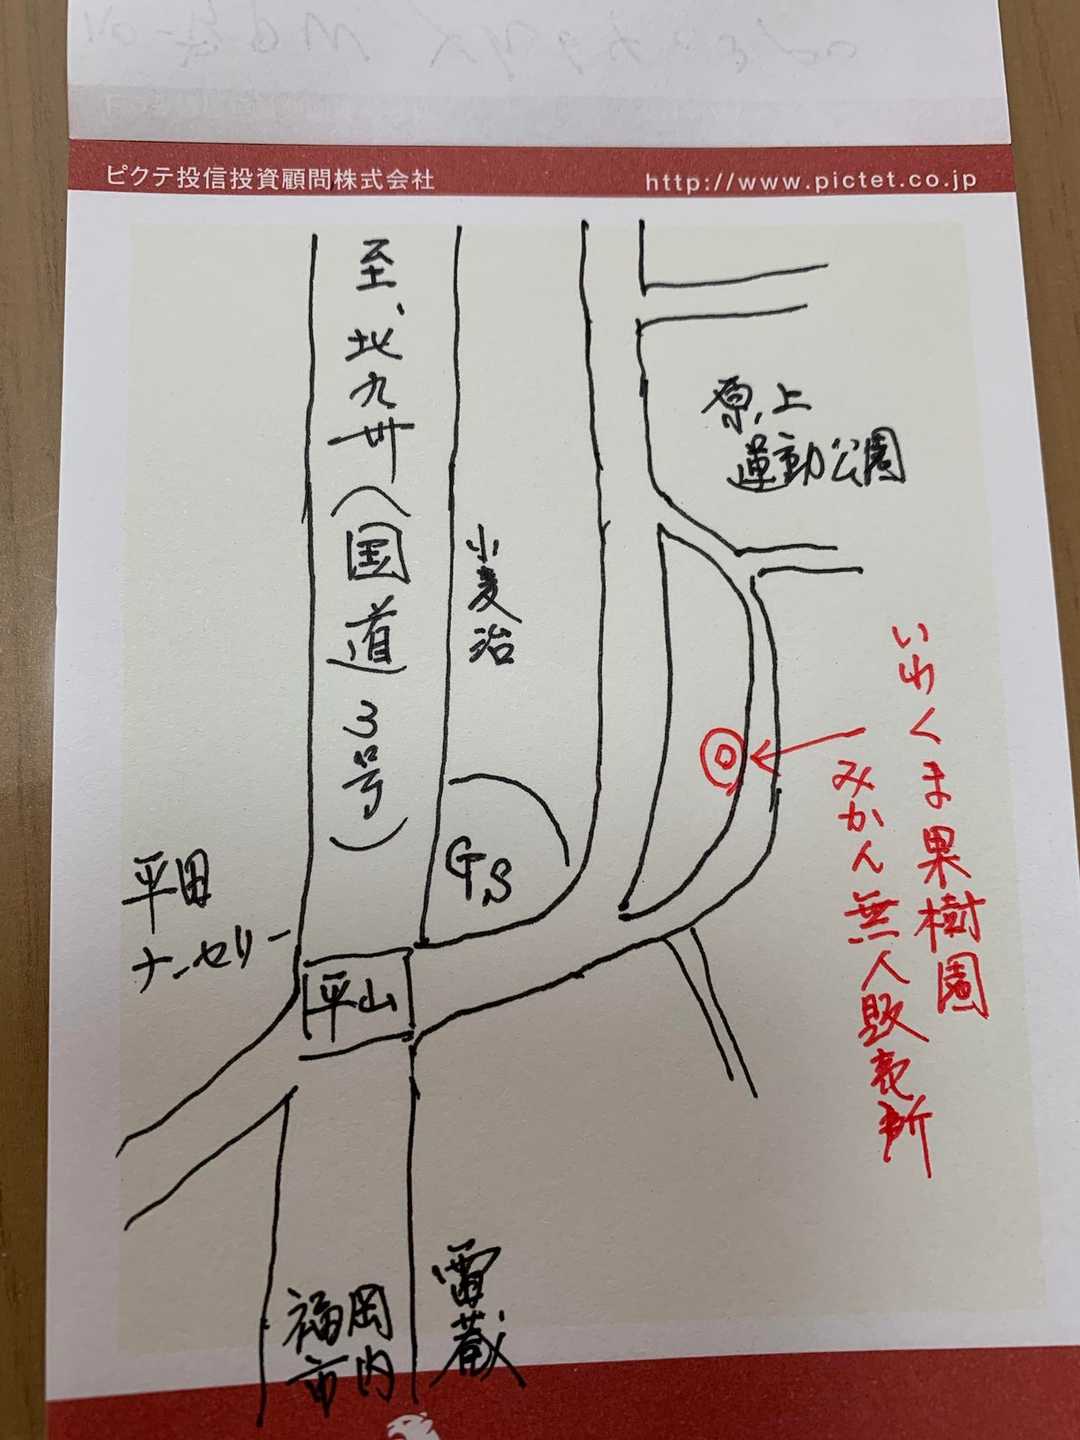 ピクテ投信投資顧問株式会社
http://www.pictet.co.jp
至、北九州(国道3号)
原上
運動公園
小麦冶
いわくま果樹園
みかん無人販売所
GS
平田
ナーセリー
平山
福岡
市内
雷蔵